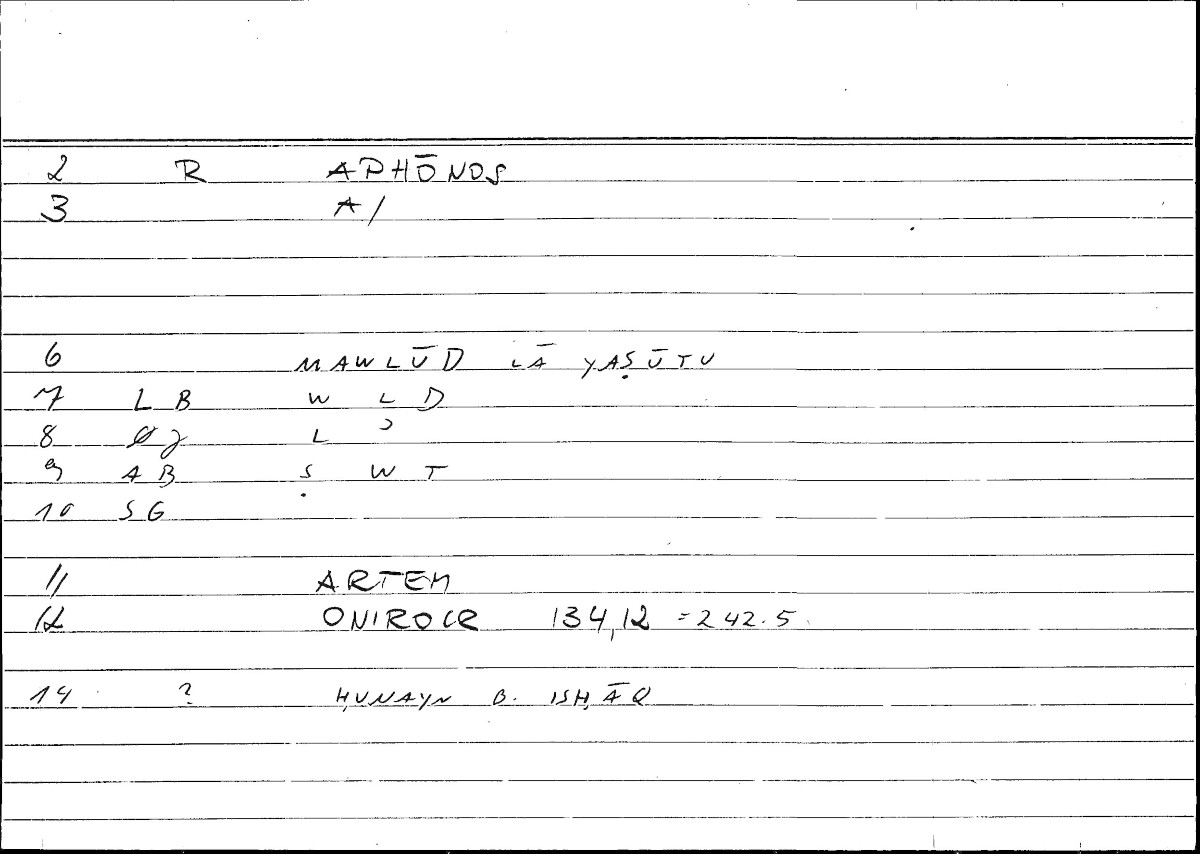 2 R APHŌNOS
3 A/
6 MAWLŪD LĀ YAṢŪTU
7 LB W L D
8 L ʾ
9 AB Ṣ W T
10 SG
11 ARTEM
12 ONIROCR 134,12 = 242.5
14 ? ḤUNAYN B. ISḤĀQ